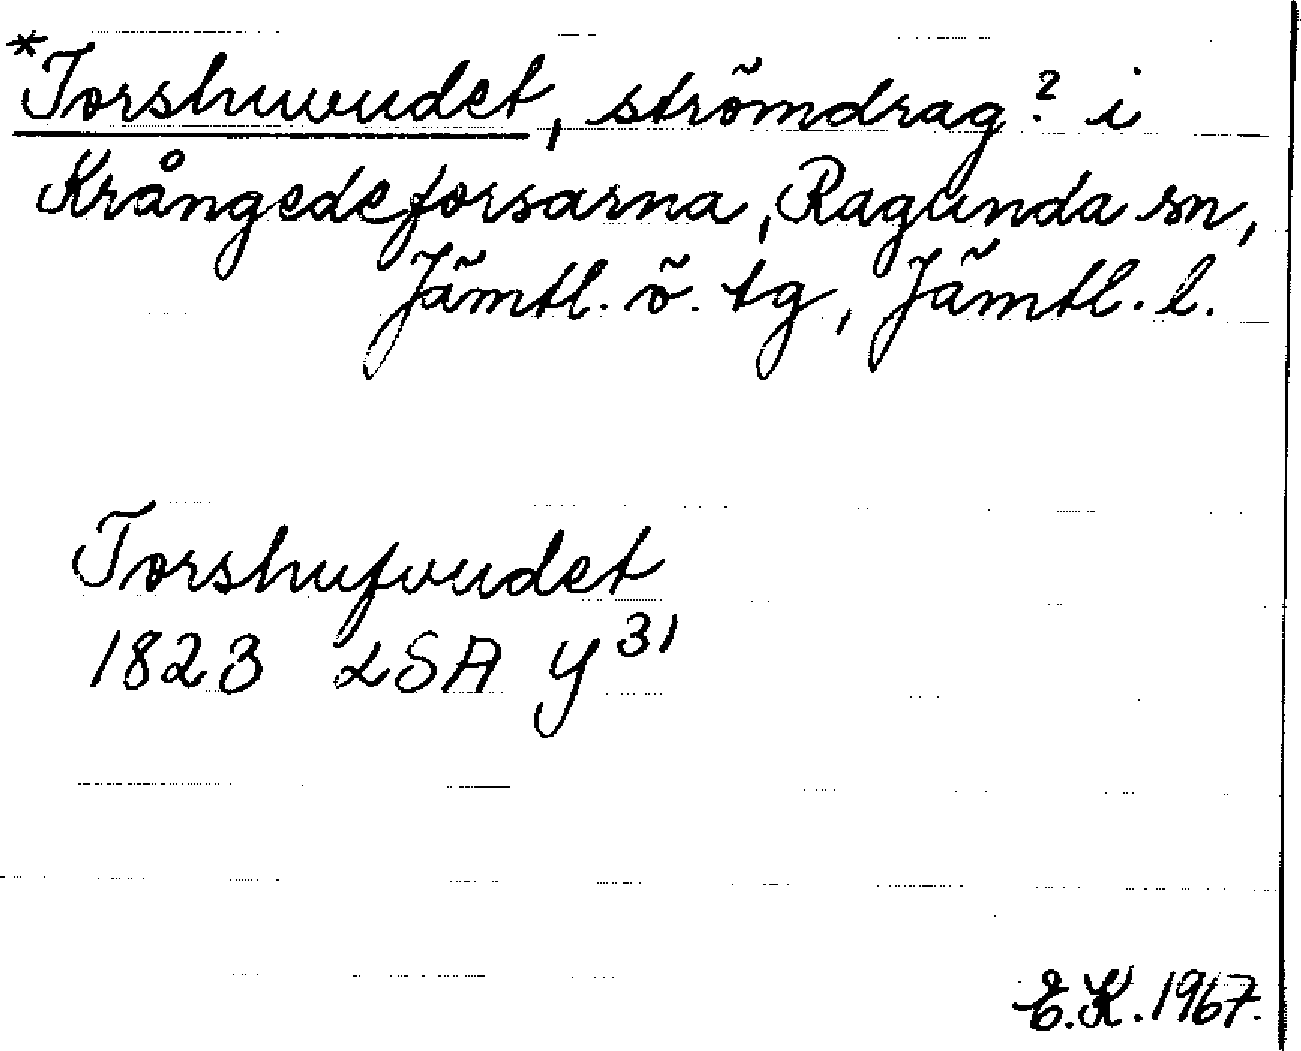 *Torshuvudet, strömdrag? i
Krångedeforsarna, Ragunda sn,
Jämtl. ö. tg, Jämtl. l.
Torshufvudet
1823 LSA Y³¹
E.K. 1967.